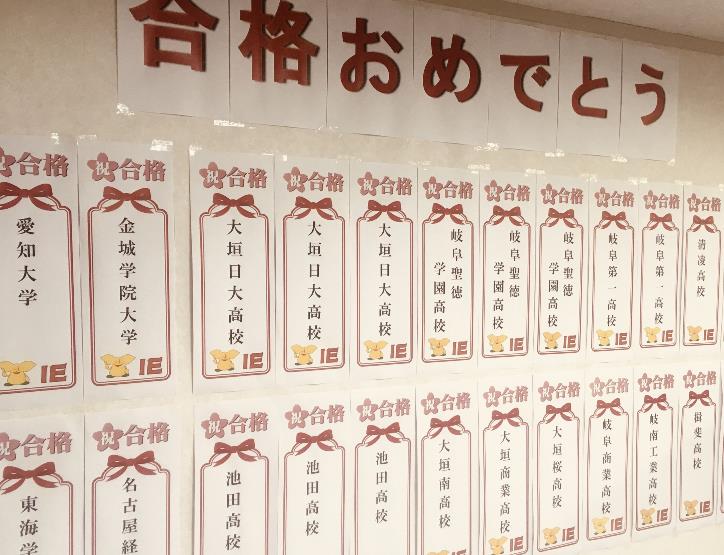 合格おめでとう
祝合格
愛知大学
IE
祝合格
金城学院大学
IE
祝合格
大垣日大高校
IE
祝合格
大垣日大高校
IE
祝合格
大垣日大高校
IE
祝合格
岐阜聖徳
学園高校
IE
祝合格
岐阜聖徳
学園高校
IE
祝合格
岐阜聖徳
学園高校
IE
祝合格
岐阜第一高校
IE
祝合格
岐阜第一高校
IE
祝合格
清凌高校
IE
祝合格
東海学
祝合格
名古屋経
祝合格
池田高校
祝合格
池田高校
祝合格
池田高校
祝合格
大垣南高校
IE
祝合格
大垣商業高校
IE
祝合格
大垣桜高校
IE
祝合格
岐阜商業高校
IE
祝合格
岐南工業高校
IE
祝合格
揖斐高校
IE